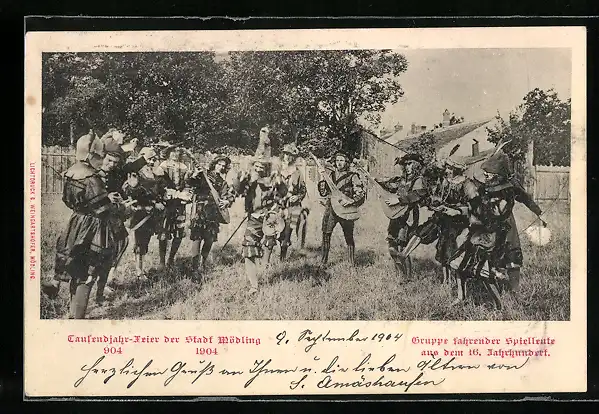 LICHTDRUCK R. WEINGARTSHOFER, MÖDLING
Tausendjahr-Feier der Stadt Mödling
904 1904
9. September 1904
Gruppe fahrender Spielleute
aus dem 16. Jahrhundert.
Herzlichen Gruß an Ihnen u. die lieben Eltern von